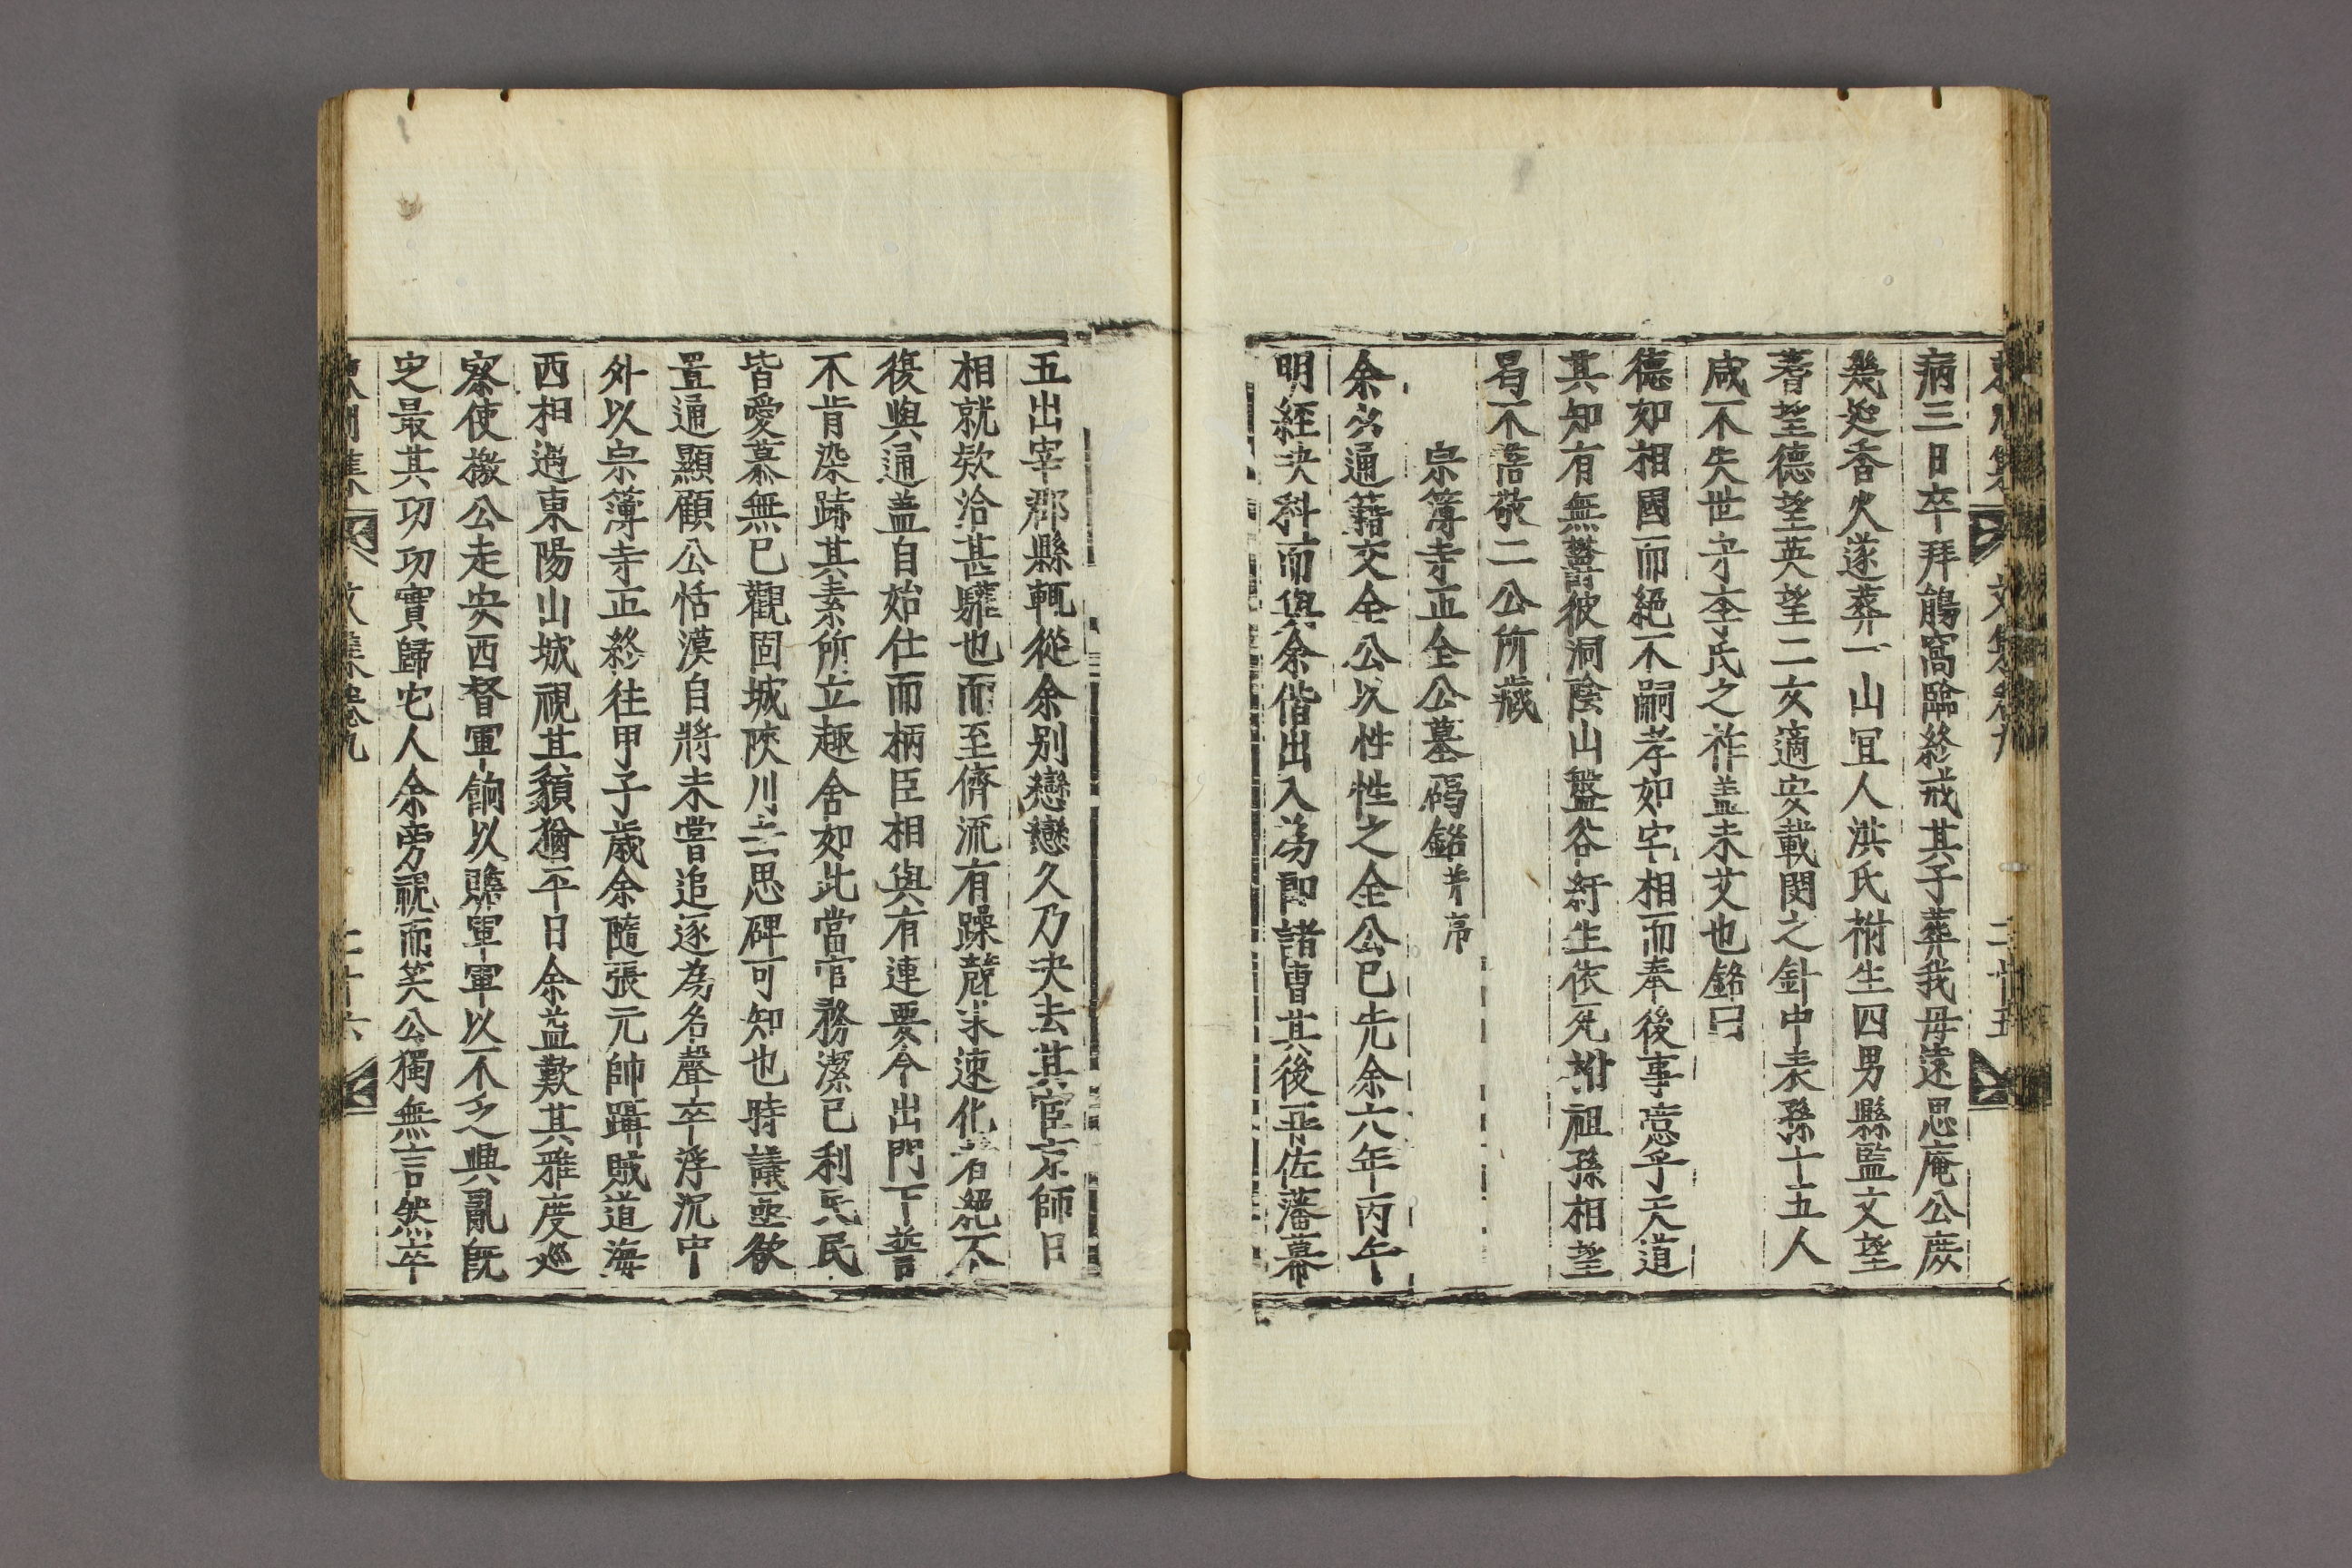 病三日卒拜鵩窩臨終戒其子葬我毋遠思庵公庶
幾迎香火遂葬一山冝人洪氏祔生四男縣監文望
耆望德望英望二女適安載閔之釬中表孫十五人
咸不失世守李氏之祚盖未艾也銘曰
德如相國而絕不嗣孝如宅相而奉後事意乎天道
其知有無聾彼洞陰山盤谷紆生依死祔祖孫相望
曷不諮敬二公所藏
宗簿寺正全公墓碣銘并序
余少通籍交全公以性性之全公已先余六年丙午
明經決科而與余偕出入為郎諸曹其後再佐藩幕
五出宰郡縣輒從余别戀戀久乃决去其官京師日
相就欵洽甚驩也而至儕流有躁競求速化者絕不
復與通盖自始仕而柄臣相與有連要令出門下誓
不肯染跡其素所立趣舍如此當官務潔已利民民
皆愛慕無已觀固城陜川去思碑可知也時議亟欲
置通顯顧公恬漠自將未嘗追逐為名聲卒浮沉中
外以宗簿寺正終往甲子歲余隨張元帥躡賊道海
西相遇東陽山城視其額猶平日余益歎其雅度巡
察使檄公走安西督軍餉以贍軍軍以不乏興亂旣
定最其功功實歸宅人余旁視而笑公獨無言然卒
文集卷九
二十六